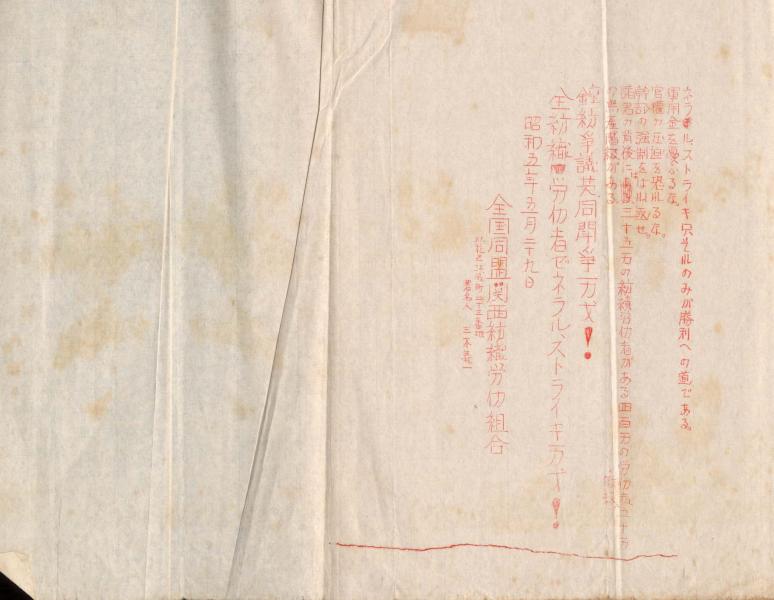 ネラル、ストライキ只ソルのみが勝利への道である。
軍用金を憂ふるな。
官權の圧迫を恐れるな。
幹部の強制をはね返せ。
諸君の背後には三十五万の紡績労仂者がある 四百万の労仂者 二千万
の無産階級がある。
鐘紡爭議共同闘爭万才!
全紡織労仂者ゼネラル、ストライキ万才!
昭和五年五月二十九日
全国同盟関西紡織労仂組合
署名人 三